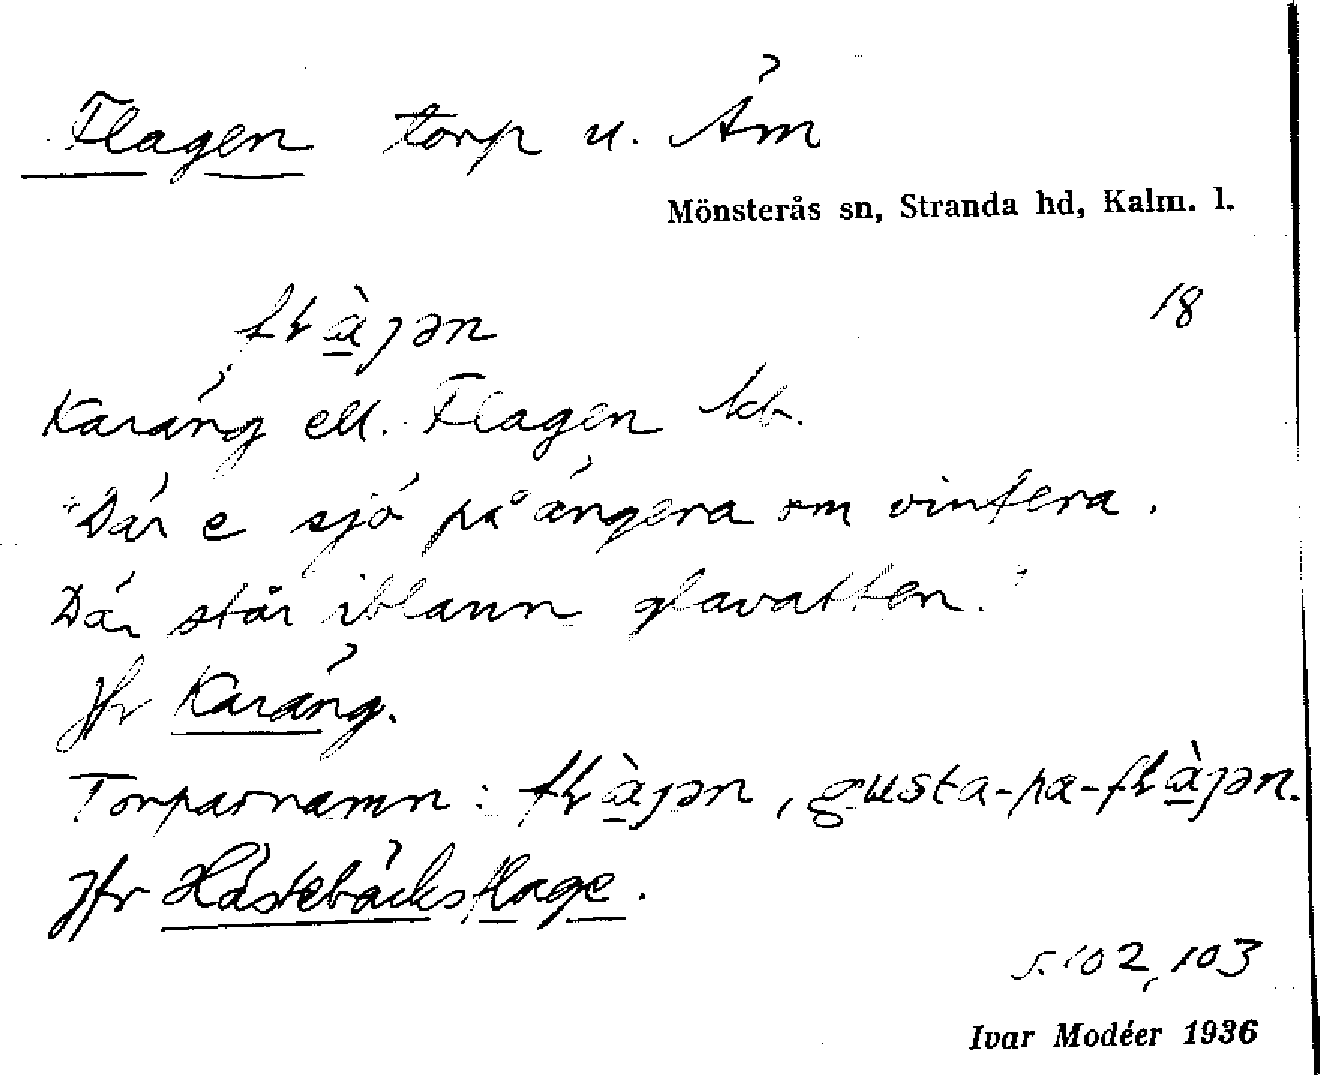 Flagen torp u. Äm
Mönsterås sn, Stranda hd, Kalm. l.
18
Karäng ell. Flagen kb.
"Där e sjö på ängera om vintera.
Där står iblann glavatten."
Jfr Karäng.
Torparnamn:
Jfr Hästebäcksflage.
s. 102, 103
Ivar Modéer 1936